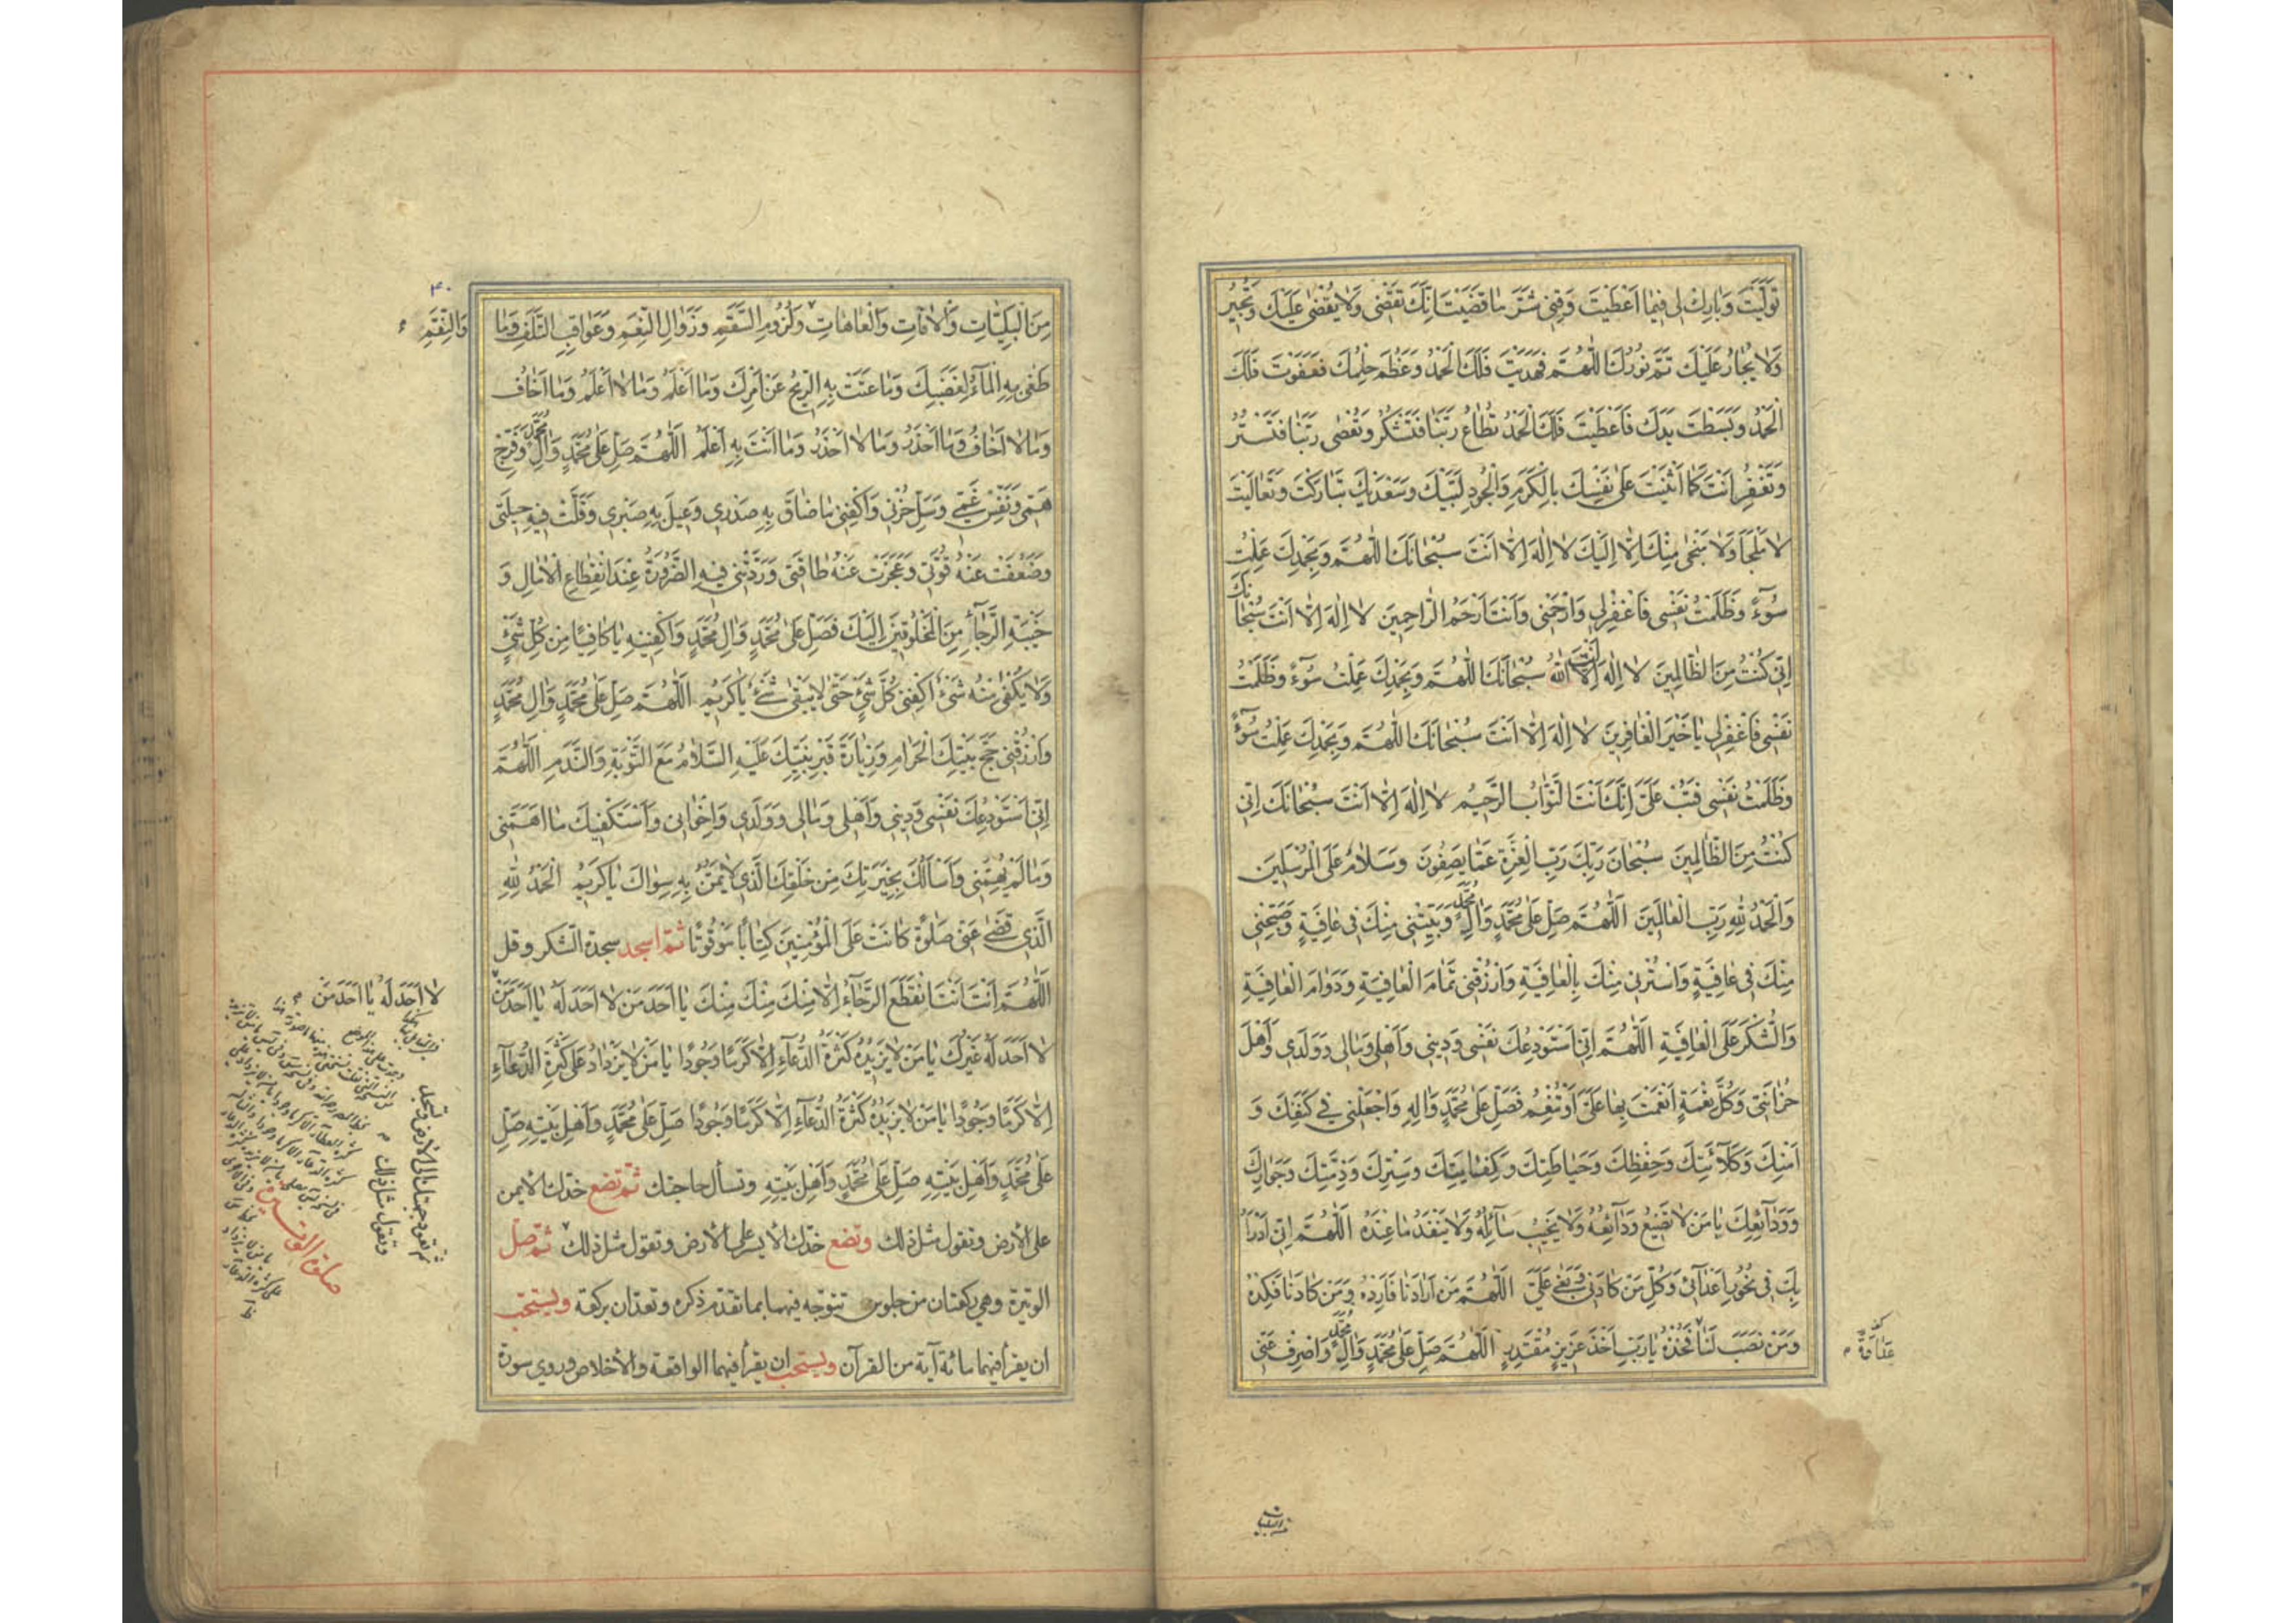 تَوَلَّيْتَ وَبَارِكْ لِي فِيمَا اَعْطَيْتَ وَقِنِي شَرَّ مَا قَضَيْتَ اِنَّكَ تَقْضِي وَلَا يُقْضٰى عَلَيْكَ وَتُجِيرُ
وَلَا يُجَارُ عَلَيْكَ تَمَّ نُورُكَ اللّٰهُمَّ فَهَدَيْتَ فَلَكَ الْحَمْدُ وَعَظُمَ حِلْمُكَ فَعَفَوْتَ فَلَكَ
الْحَمْدُ وَبَسَطْتَ يَدَكَ فَاَعْطَيْتَ فَلَكَ الْحَمْدُ تُطَاعُ رَبَّنَا فَتَشْكُرُ وَتُعْصٰى رَبَّنَا فَتَسْتُرُ
وَتَغْفِرُ اَنْتَ كَمَا اَثْنَيْتَ عَلٰى نَفْسِكَ بِالْكَرَمِ وَالْجُودِ لَبَّيْكَ وَسَعْدَيْكَ تَبَارَكْتَ وَتَعَالَيْتَ
لَا مَلْجَأَ وَلَا مَنْجٰى مِنْكَ اِلَّا اِلَيْكَ لَا اِلٰهَ اِلَّا اَنْتَ سُبْحَانَكَ اللّٰهُمَّ وَبِحَمْدِكَ عَمِلْتُ
سُوٓءً وَظَلَمْتُ نَفْسِي فَاغْفِرْ لِي وَارْحَمْنِي وَاَنْتَ اَرْحَمُ الرَّاحِمِينَ لَا اِلٰهَ اِلَّا اَنْتَ سُبْحَانَكَ
اِنِّي كُنْتُ مِنَ الظَّالِمِينَ لَا اِلٰهَ اِلَّا اَنْتَ اللّٰهُ سُبْحَانَكَ اللّٰهُمَّ وَبِحَمْدِكَ عَمِلْتُ سُوٓءً وَظَلَمْتُ
نَفْسِي فَاغْفِرْ لِي يَا خَيْرَ الْغَافِرِينَ لَا اِلٰهَ اِلَّا اَنْتَ سُبْحَانَكَ اللّٰهُمَّ وَبِحَمْدِكَ عَمِلْتُ سُوٓءً
وَظَلَمْتُ نَفْسِي فَتُبْ عَلَيَّ اِنَّكَ اَنْتَ التَّوَّابُ الرَّحِيمُ لَا اِلٰهَ اِلَّا اَنْتَ سُبْحَانَكَ اِنِّي
كُنْتُ مِنَ الظَّالِمِينَ سُبْحَانَ رَبِّكَ رَبِّ الْعِزَّةِ عَمَّا يَصِفُونَ وَسَلَامٌ عَلَى الْمُرْسَلِينَ
وَالْحَمْدُ لِلّٰهِ رَبِّ الْعَالَمِينَ اَللّٰهُمَّ صَلِّ عَلٰى مُحَمَّدٍ وَاٰلِ مُحَمَّدٍ وَبَيِّتْنِي مِنْكَ فِي عَافِيَةٍ وَصَبِّحْنِي
مِنْكَ فِي عَافِيَةٍ وَاسْتُرْنِي مِنْكَ بِالْعَافِيَةِ وَارْزُقْنِي تَمَامَ الْعَافِيَةِ وَدَوَامَ الْعَافِيَةِ
وَالشُّكْرَ عَلَى الْعَافِيَةِ اَللّٰهُمَّ اِنِّي اَسْتَوْدِعُكَ نَفْسِي وَدِينِي وَاَهْلِي وَمَالِي وَوَلَدِي وَاَهْلَ
حُزَانَتِي وَكُلَّ نِعْمَةٍ اَنْعَمْتَ بِهَا عَلَيَّ اَوْ تُنْعِمُ فَصَلِّ عَلٰى مُحَمَّدٍ وَاٰلِهِ وَاجْعَلْنِي فِي كَنَفِكَ وَ
اَمْنِكَ وَكَلَاءَتِكَ وَحِفْظِكَ وَحِيَاطَتِكَ وَكِفَايَتِكَ وَسِتْرِكَ وَذِمَّتِكَ وَجِوَارِكَ
وَوَدَائِعِكَ يَا مَنْ لَا تَضِيعُ وَدَائِعُهُ وَلَا يَخِيبُ سَائِلُهُ وَلَا يَنْفَدُ مَا عِنْدَهُ اَللّٰهُمَّ اِنِّي اَدْرَأُ
بِكَ فِي نُحُورِ اَعْدَائِي وَكُلِّ مَنْ كَادَنِي وَبَغٰى عَلَيَّ اَللّٰهُمَّ مَنْ اَرَادَنَا فَاَرِدْهُ وَمَنْ كَادَنَا فَكِدْهُ
وَمَنْ نَصَبَ لَنَا فَخُذْهُ يَا رَبِّ اَخْذَ عَزِيزٍ مُقْتَدِرٍ اَللّٰهُمَّ صَلِّ عَلٰى مُحَمَّدٍ وَاٰلِ مُحَمَّدٍ وَاصْرِفْ عَنِّي
من البليات
٤٠
مِنَ الْبَلِيَّاتِ وَالْاٰفَاتِ وَالْعَاهَاتِ وَلُزُومِ السَّقَمِ وَزَوَالِ النِّعَمِ وَعَوَاقِبِ التَّلَفِ وَمَا
وَالنِّقَمِ
طَغٰى بِهِ الْمَاءُ لِغَضَبِكَ وَمَا عَتَتْ بِهِ الرِّيحُ عَنْ اَمْرِكَ وَمَا اَعْلَمُ وَمَا لَا اَعْلَمُ وَمَا اَخَافُ
وَمَا لَا اَخَافُ وَمَا اَحْذَرُ وَمَا لَا اَحْذَرُ وَمَا اَنْتَ بِهِ اَعْلَمُ اَللّٰهُمَّ صَلِّ عَلٰى مُحَمَّدٍ وَاٰلِ مُحَمَّدٍ وَفَرِّجْ
هَمِّي وَنَفِّسْ غَمِّي وَسَلِّ حُزْنِي وَاكْفِنِي مَا ضَاقَ بِهِ صَدْرِي وَعِيلَ بِهِ صَبْرِي وَقَلَّتْ فِيهِ حِيلَتِي
وَضَعُفَتْ عَنْهُ قُوَّتِي وَعَجَزَتْ عَنْهُ طَاقَتِي وَرَدَّتْنِي فِيهِ الضَّرُورَةُ عِنْدَ انْقِطَاعِ الْاٰمَالِ وَ
خَيْبَةِ الرَّجَاءِ مِنَ الْمَخْلُوقِينَ اِلَيْكَ فَصَلِّ عَلٰى مُحَمَّدٍ وَاٰلِ مُحَمَّدٍ وَاكْفِنِيهِ يَا كَافِيًا مِنْ كُلِّ شَيْءٍ
وَلَا يَكْفِي مِنْهُ شَيْءٌ اكْفِنِي كُلَّ شَيْءٍ حَتّٰى لَا يَبْقٰى شَيْءٌ يَا كَرِيمُ اَللّٰهُمَّ صَلِّ عَلٰى مُحَمَّدٍ وَاٰلِ مُحَمَّدٍ
وَارْزُقْنِي حَجَّ بَيْتِكَ الْحَرَامِ وَزِيَارَةَ قَبْرِ نَبِيِّكَ عَلَيْهِ السَّلَامُ مَعَ التَّوْبَةِ وَالنَّدَمِ اَللّٰهُمَّ
اِنِّي اَسْتَوْدِعُكَ نَفْسِي وَدِينِي وَاَهْلِي وَمَالِي وَوَلَدِي وَاِخْوَانِي وَاَسْتَكْفِيكَ مَا اَهَمَّنِي
وَمَا لَمْ يُهِمَّنِي وَاَسْاَلُكَ بِخِيَرَتِكَ مِنْ خَلْقِكَ الَّذِي لَا يَمُنُّ بِهِ سِوَاكَ يَا كَرِيمُ اَلْحَمْدُ لِلّٰهِ
الَّذِي قَضٰى عَنِّي صَلٰوةً كَانَتْ عَلَى الْمُؤْمِنِينَ كِتَابًا مَوْقُوتًا ثم اسجد سجدة الشكر وقل
اَللّٰهُمَّ اَنْتَ اَنْتَ انْقَطَعَ الرَّجَاءُ اِلَّا مِنْكَ مِنْكَ مِنْكَ يَا اَحَدَ مَنْ لَا اَحَدَ لَهُ يَا اَحَدَ مَنْ
لَا اَحَدَ لَهُ يَا اَحَدَ مَنْ
لَا اَحَدَ لَهُ غَيْرُكَ يَا مَنْ لَا يَزِيدُهُ كَثْرَةُ الدُّعَاءِ اِلَّا كَرَمًا وَجُودًا يَا مَنْ لَا يَزْدَادُ عَلٰى كَثْرَةِ الدُّعَاءِ
اِلَّا كَرَمًا وَجُودًا يَا مَنْ لَا يَزِيدُهُ كَثْرَةُ الدُّعَاءِ اِلَّا كَرَمًا وَجُودًا صَلِّ عَلٰى مُحَمَّدٍ وَاَهْلِ بَيْتِهِ صَلِّ
عَلٰى مُحَمَّدٍ وَاَهْلِ بَيْتِهِ صَلِّ عَلٰى مُحَمَّدٍ وَاَهْلِ بَيْتِهِ وتسأل حاجتك ثم تضع خدك الأيمن
على الأرض وتقول مثل ذلك وتضع خدك الأيسر على الأرض وتقول مثل ذلك ثم تصل
ثم تعود جبهتك الى الأرض وتسجد
وتقول مثل ذلك
الوتيرة وهي ركعتان من جلوس تتوجه فيهما بما تقدم ذكره وتعدان بركعة ويستحب
ان يقرأ فيهما مائة آية من القرآن ويستحب ان يقرأ فيهما الواقعة والأخلاص وروي سورة